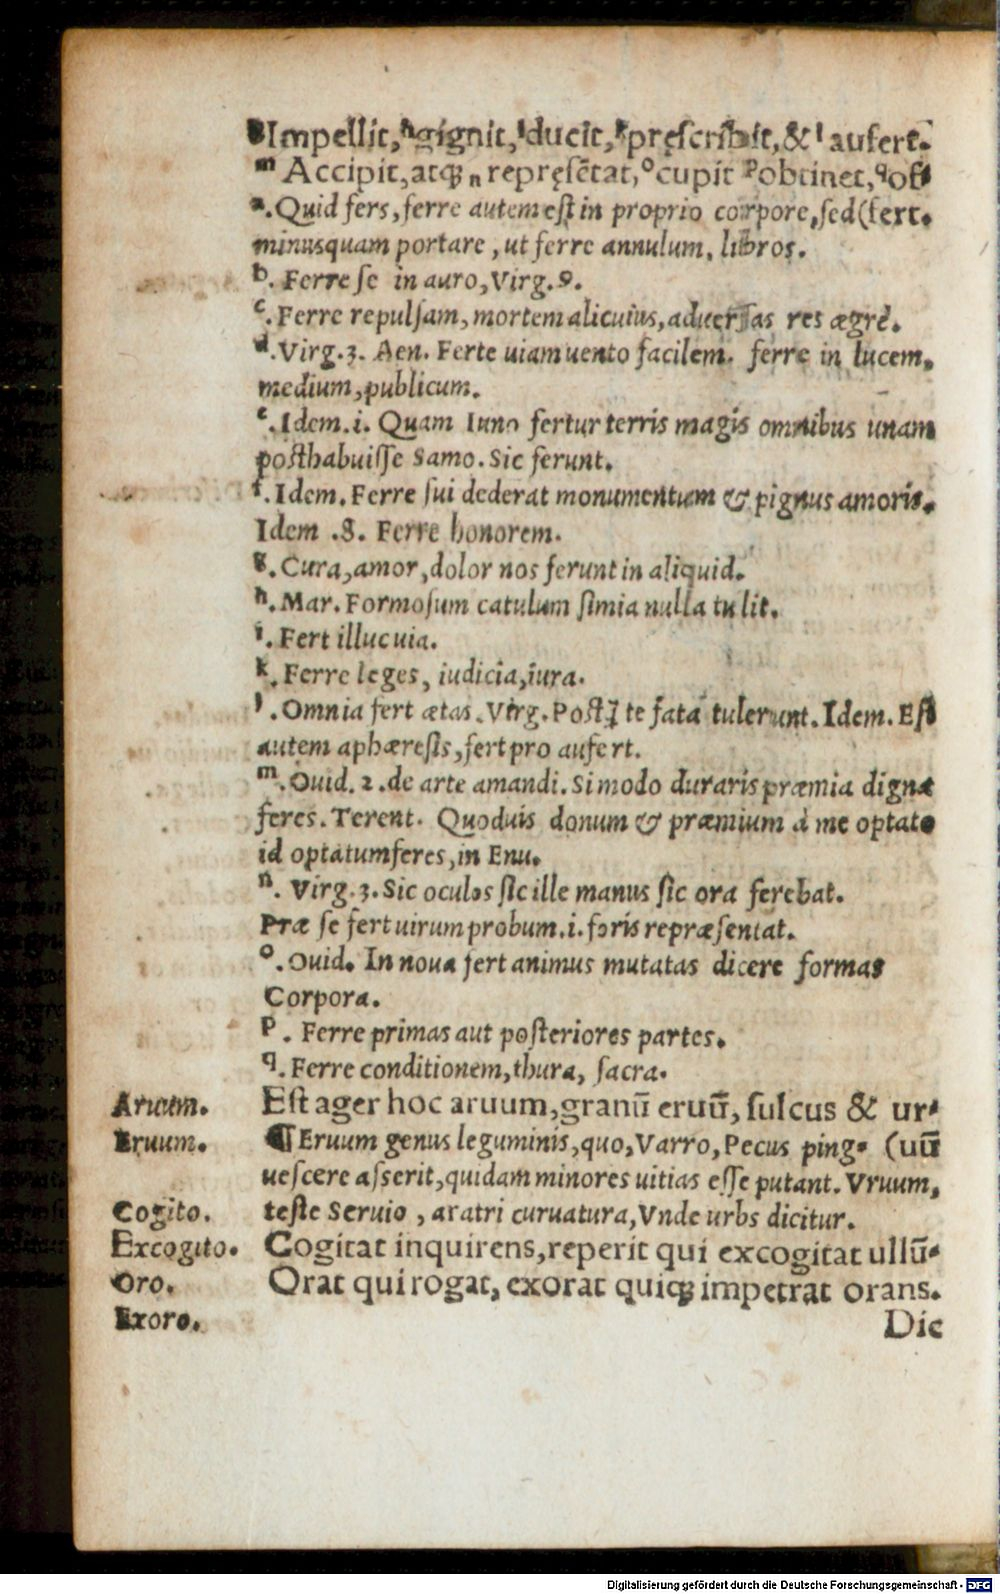 g Impellit, h gignit, i ducit, k pręscribit, & l aufert.
m Accipit, atq; n repręsẽtat, o cupit p obtinet, q of⸗
a. Quid fers, ferre autem est in proprio corpore, sed (fert.
minusquam portare, ut ferre annulum, libros.
b. Ferre se in auro, Virg. 9.
c. Ferre repulsam, mortem alicuius, aduersas res ægrè.
d. Virg. 3. Aen. Ferte uiam uento facilem. ferre in lucem,
medium, publicum.
e. Idem. i. Quam Iuno fertur terris magis omnibus unam
posthabuisse Samo. Sic ferunt.
f. Idem. Ferre sui dederat monumentum & pignus amoris.
Idem .8. Ferre honorem.
g. Cura, amor, dolor nos ferunt in aliquid.
h. Mar. Formosum catulum simia nulla tulit.
i. Fert illuc uia.
k. Ferre leges, iudicia, iura.
l. Omnia fert ætas. Virg. Postq̃ te fata tulerunt. Idem. Est
autem aphæresis, fert pro aufert.
m. Ouid. 2. de arte amandi. Si modo duraris præmia digna
feres. Terent. Quoduis donum & præmium à me optato
id optatum feres, in Enu.
n. Virg. 3. Sic oculos sic ille manus sic ora ferebat.
Præ se fert uirum probum. i. foris repræsentat.
o. Ouid. In noua fert animus mutatas dicere formas
Corpora.
p. Ferre primas aut posteriores partes.
q. Ferre conditionem, thura, sacra.
Aruum. Est ager hoc aruum, granũ eruũ, sulcus & ur⸗
Eruum. ¶ Eruum genus leguminis, quo, Varro, Pecus ping⸗ (uũ
uescere asserit, quidam minores uitias esse putant. Vruum,
Cogito. teste Seruio, aratri curuatura, Vnde urbs dicitur.
Excogito. Cogitat inquirens, reperit qui excogitat ullũ⸗
Oro. Orat qui rogat, exorat quiq; impetrat orans.
Exoro. Dic
Digitalisierung gefördert durch die Deutsche Forschungsgemeinschaft - DFG